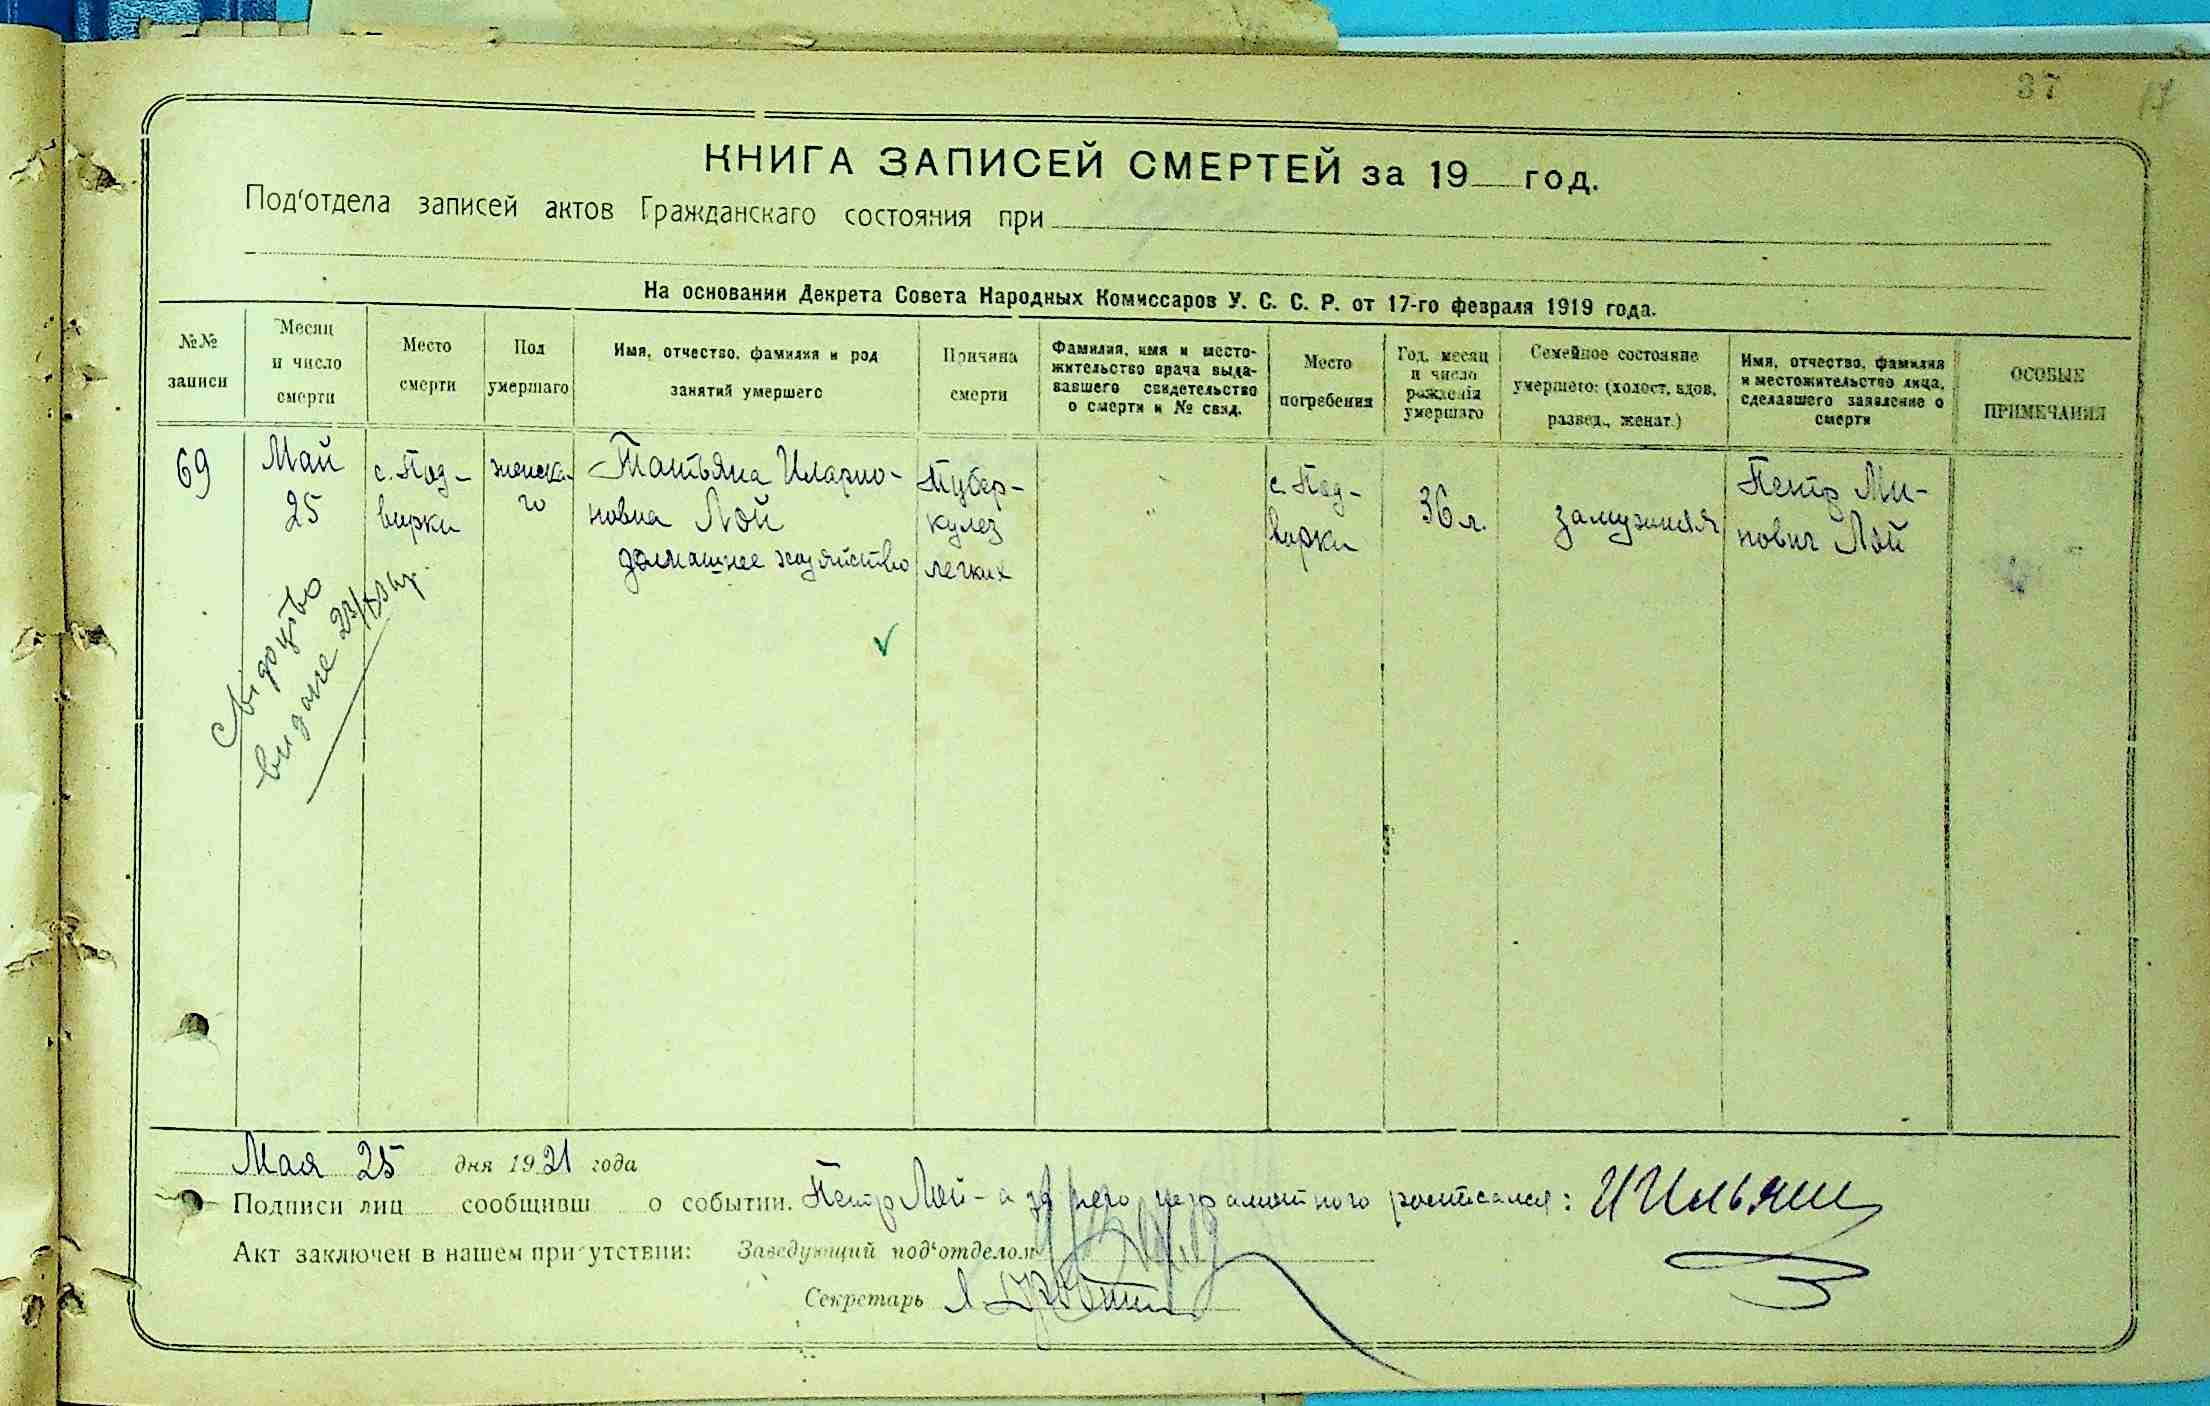 37
КНИГА ЗАПИСЕЙ СМЕРТЕЙ за 19 год.
Под'отдела записей актов Гражданскаго состояния при
На основании Декрета Совета Народных Комиссаров У. С. С. Р. от 17-го февраля 1919 года.
№№ записи
Месяц и число смерти
Место смерти
Пол умершаго
Имя, отчество, фамилия и род занятий умершего
Причина смерти
Фамилия, имя и место-
жительство врача выда-
вавшего свидетельство
о смерти и № свид.
Место погребения
Год, месяц
и число
рождения
умершаго
Семейное состояние
умершего: (холост, вдов,
развед., женат.)
Имя, отчество, фамилия
и местожительство лица,
сделавшего заявление о
смерти
ОСОБЫЕ
ПРИМЕЧАНИЯ
69
Май
25
с. Под-
ворки
женска-
го
Татьяна Иларио-
новна Лой
домашнее хозяйство
Тубер-
кулез
легких
с. Под-
ворки
36 л.
замужняя
Петр Ми-
нович Лой
свідоцтво
видане
Мая 25 дня 1921 года
Подписи лиц сообщивш о событии. Петр Лой - а за него неграмотного росписался:
Акт заключен в нашем присутствии: Заведующий под'отделом
Секретарь